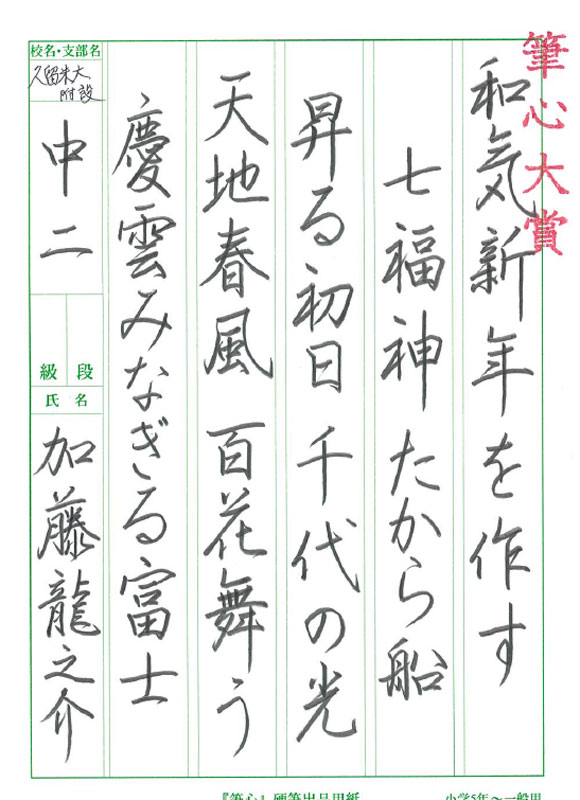 筆心大賞
和気新年を作す
七福神 たから船
昇る初日 千代の光
天地春風 百花舞う
慶雲みなぎる富士
校名・支部名
久留米大
附設
中二
級 段
氏 名
加藤龍之介
『筆心』硬筆出品用紙
小学5年〜一般用